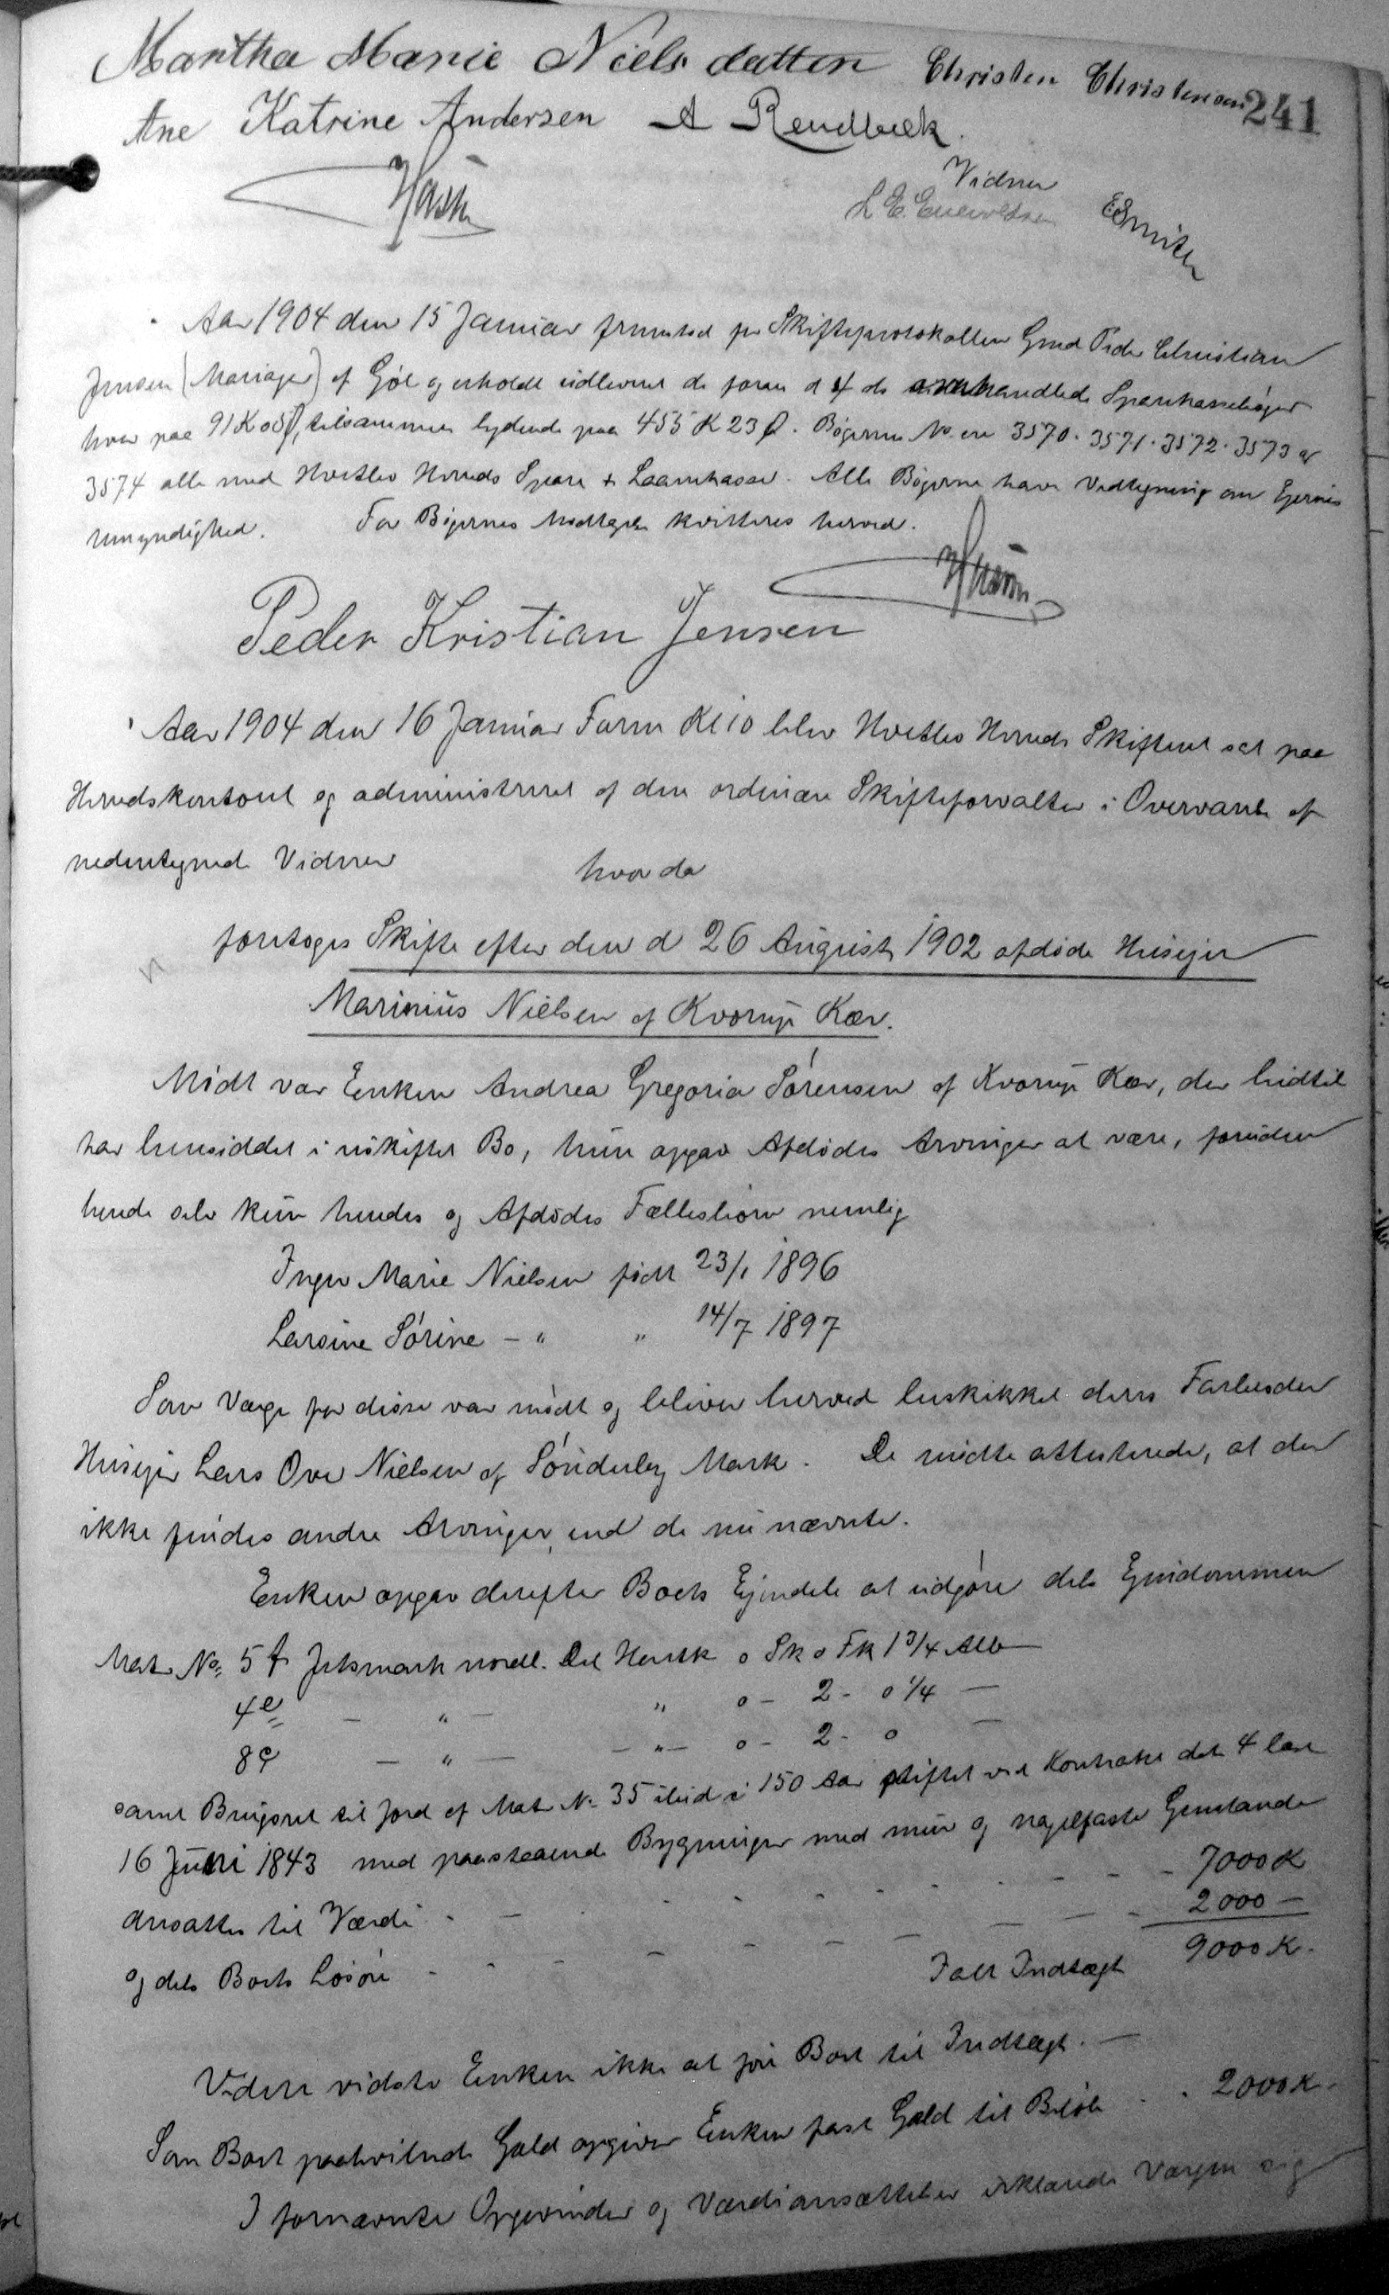 Martha Marie Nielsdatter Christen Christensen 241
Ane Katrine Andersen A Rendbæk.
Vidner
L E Enevoldsen ESmith
Aar 1904 den 15 Januar fremstod for Skifteprotokollen Gmd Peder Christian
Jensen (Mariager) af Gøl og erholdt udleveret de foran d 4 ds omhandlede Sparekassebøger
hver paa 91 K 05 Ø, tilsammen lydende paa 455 K 23 Ø. Bøgernes No ere 3570. 3571. 3572. 3573 og
3574 alle med Hvetbo Herreds Spare & Laanekasse. Alle Bøgerne have Vedtegning om Ejernes
Umyndighed. For Bøgernes Modtagelse kvitteres herved.
Peder Kristian Jensen
Aar 1904 den 16 Januar Form Kl 10 blev Hvetbo Herreds Skifteret sat paa
Herredskontoret og administreret af den ordinære Skifteforvalter i Overværelse af
nedentegnede Vidner hvor da
foretoges Skifte efter den d 26 August 1902 afdøde Husejer
Marinus Nielsen af Kvorup Kær.
Mødt var Enken Andrea Gregoria Sørensen af Kvorup Kær, der hidtil
har hensiddet i uskiftet Bo, hun opgav Afdødes Arvinger at være, foruden
hende selv kun hendes og Afdødes Fællesbørn nemlig
Inger Marie Nielsen født 23/1 1896
Larsine Sørine - " " 14/7 1897
Som Værge for disse var mødt og bliver herved beskikket deres Farbroder
Husejer Lars Ove Nielsen af Sønderby Mark. De mødte attesterede, at der
ikke findes andre Arvinger, end de nu nævnte.
Enken opgav derefter Boets Ejendele at udgøre dels Ejendommen
Matr No 5 f Jetsmark nordl. Del Hartk 0 Sk 0 Fk 1 3/4 Alb
4e - " - " 0 - 2 - 0 1/4 -
8c - " - - " - 0 - 2 - 0 -
samt Brugsret til Jord af Matr No 35 ibid i 150 Aar stiftet ved Kontrakt det 4 læst
16 Juni 1843 med paastaaende Bygninger med mur og nagelfaste Genstande
ansattes til Værdi - - - - - - - - - 7000 K
og dels Boets Løsøre - - - - - - - - 2000 -
Ialt Indtægt 9000 K.
Videre vidste Enken ikke at føre Boet til Indtægt. -
Som Boet paahvilende Gæld opgiver Enken fast Gæld til Beløb . . 2000 K.
I fornævnte Opgivender og Værdiansættelser erklærede Værgen sig